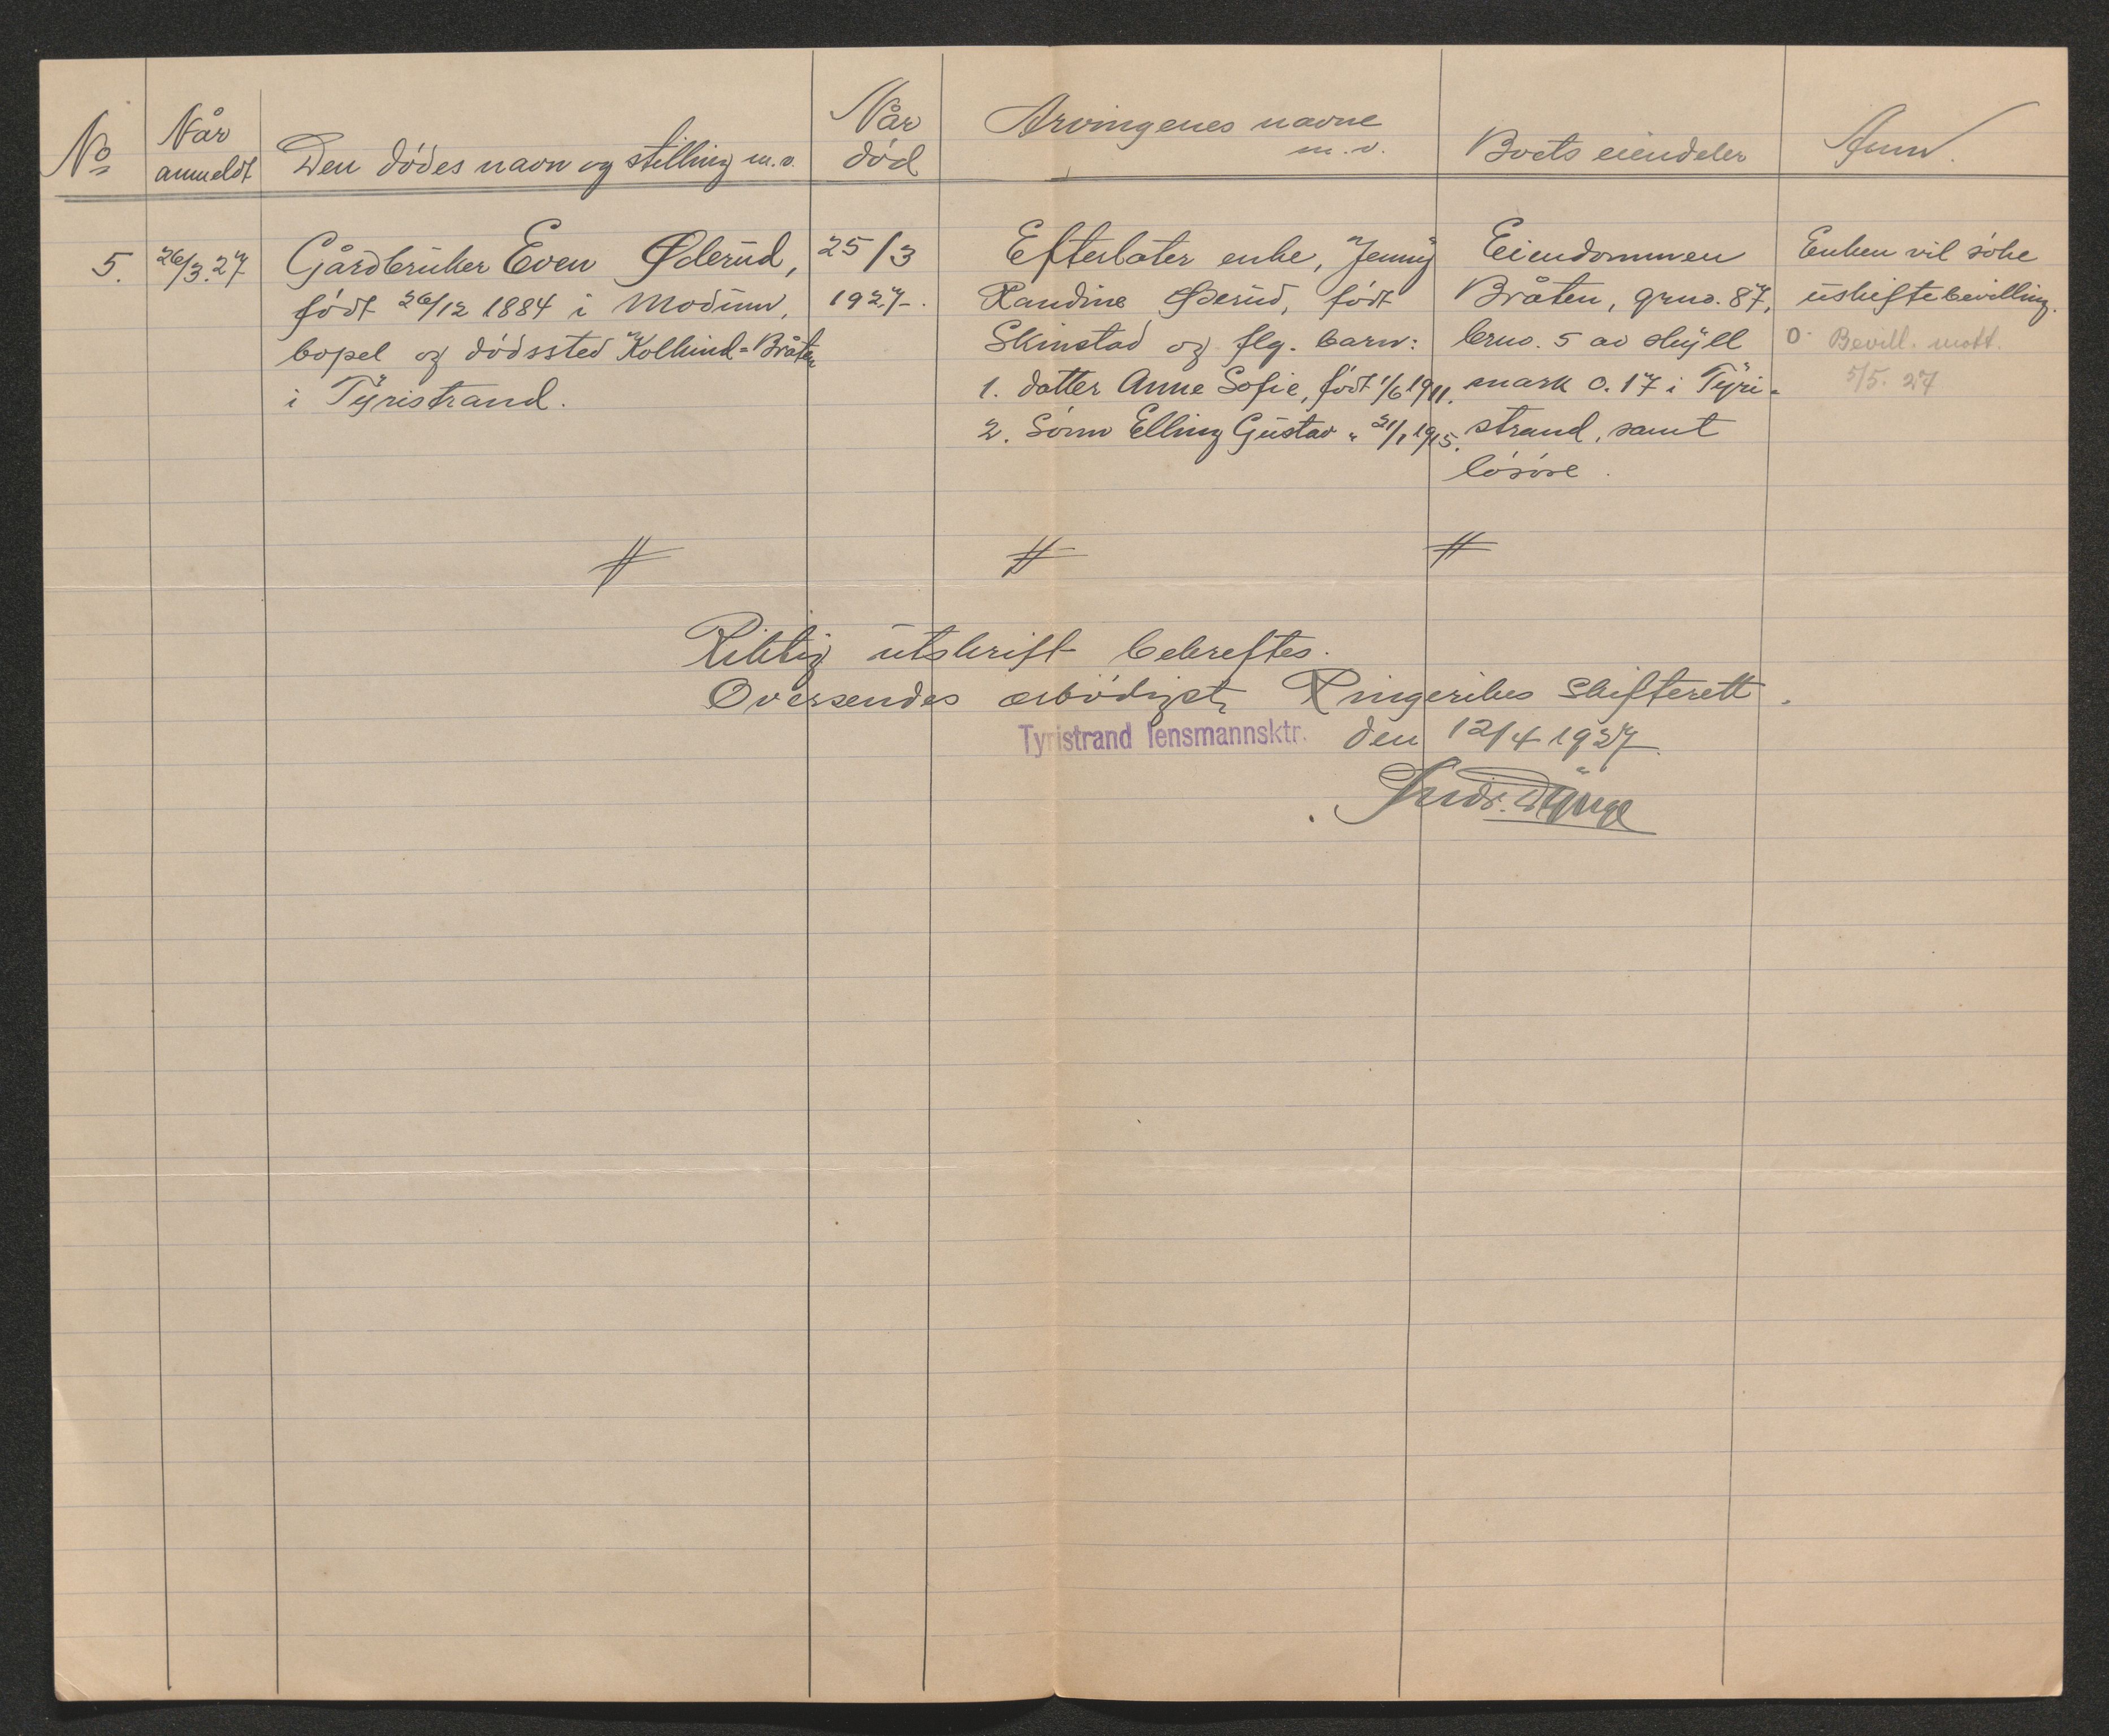 No
Når
anmeldt
Den dødes navn og stilling m.v.
Når
død
Arvingenes navne
m.v.
Boets eiendeler
Anm.
5.
26/3.27
Gårdbruker Even Øderud,
født 26/12 1884 i Modum,
bopel og dødssted Kolkind=Bråten
i Tyristrand.
25/3
1927.
Efterlater enke, Jenny
Randine Øderud, født
Skinstad og flg. barn:
1. datter Anne Sofie, født 1/6 1911.
2. Sønn Elling Gustav " 21/1 1915.
Eiendommen
Bråten, grno. 87,
brno. 5 av skyll
mark 0.17 i Tyri=
strand, samt
løsøre.
Enken vil søke
uskiftebevilling.
0- Bevill. mott.
5/5. 27
Riktig utskrift bekreftes.
Oversendes ærbødigst Ringerikes Skifterett.
Tyristrand lensmannsktr. den 12/4 1927.